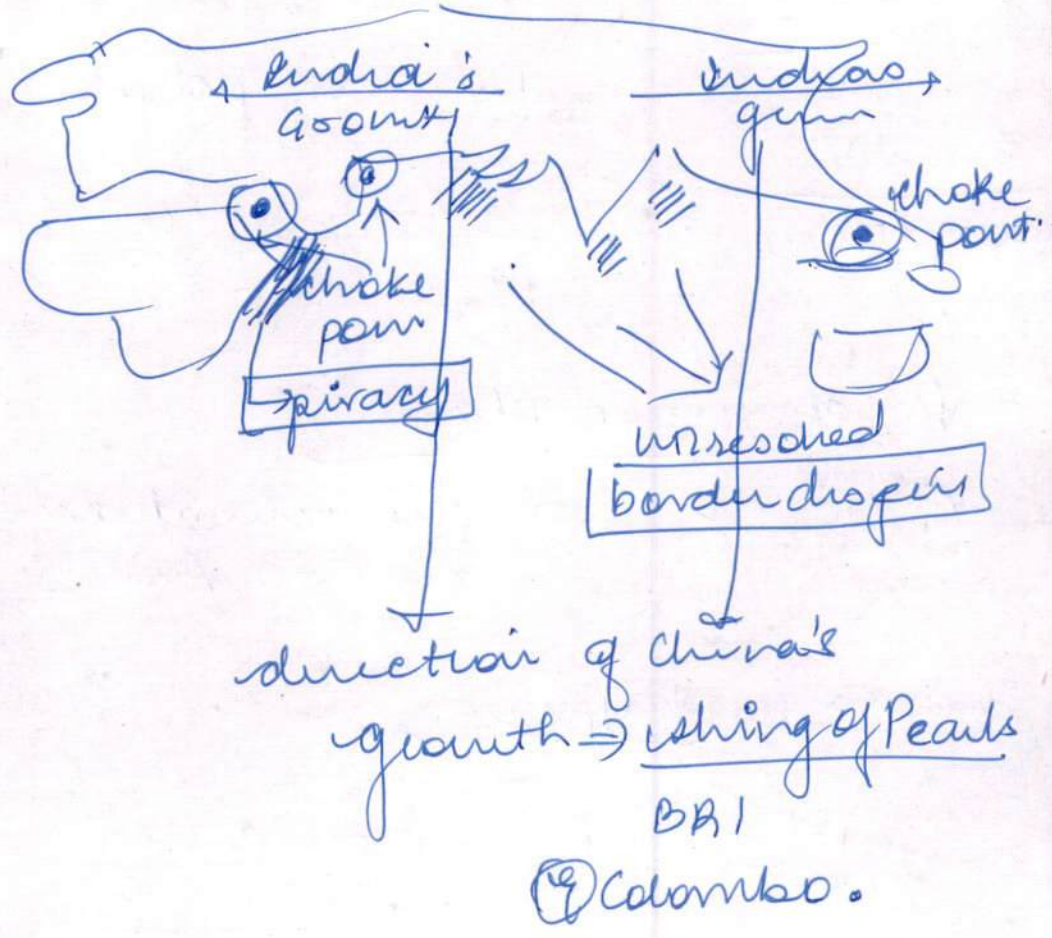 India's
India's
growth
choke
point.
choke
point
piracy
unresolved
border disputes
direction of China's
growth ⇒ string of Pearls
BRI
eg Colombo.